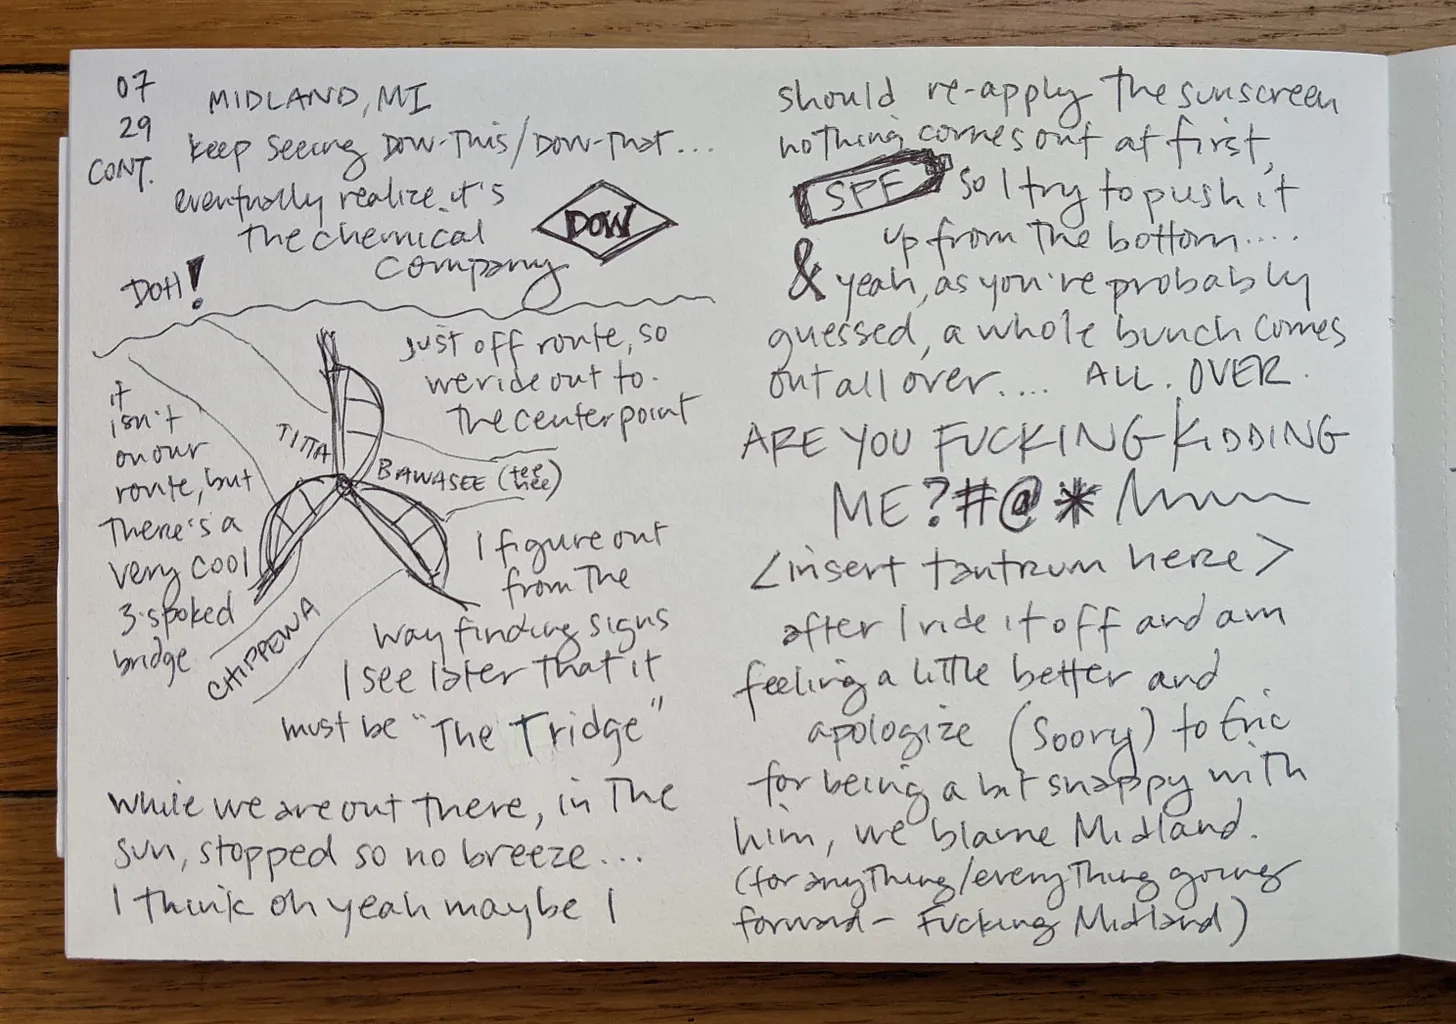 07
29
CONT.
MIDLAND, MI
keep seeing DOW-This/DOW-That...
eventually realize it's
the chemical
company
DOW
DOH!
it
isn't
on our
route, but
there's a
very cool
3-spoked
bridge
just off route, so
we ride out to
the center point
TITTA
BAWASEE (tee hee)
CHIPPEWA
I figure out
from the
way finding signs
I see later that it
must be "The Tridge"
while we are out there, in the
sun, stopped so no breeze...
I think oh yeah maybe I
should re-apply the sunscreen
nothing comes out at first,
SPF so I try to push it
up from the bottom....
& yeah, as you're probably
guessed, a whole bunch comes
out all over.... ALL. OVER.
ARE YOU FUCKING KIDDING
ME?#@*
<insert tantrum here>
after I ride it off and am
feeling a little better and
apologize (Soory) to Eric
for being a bit snappy with
him, we blame Midland.
(for anything/everything going
forward- Fucking Midland)